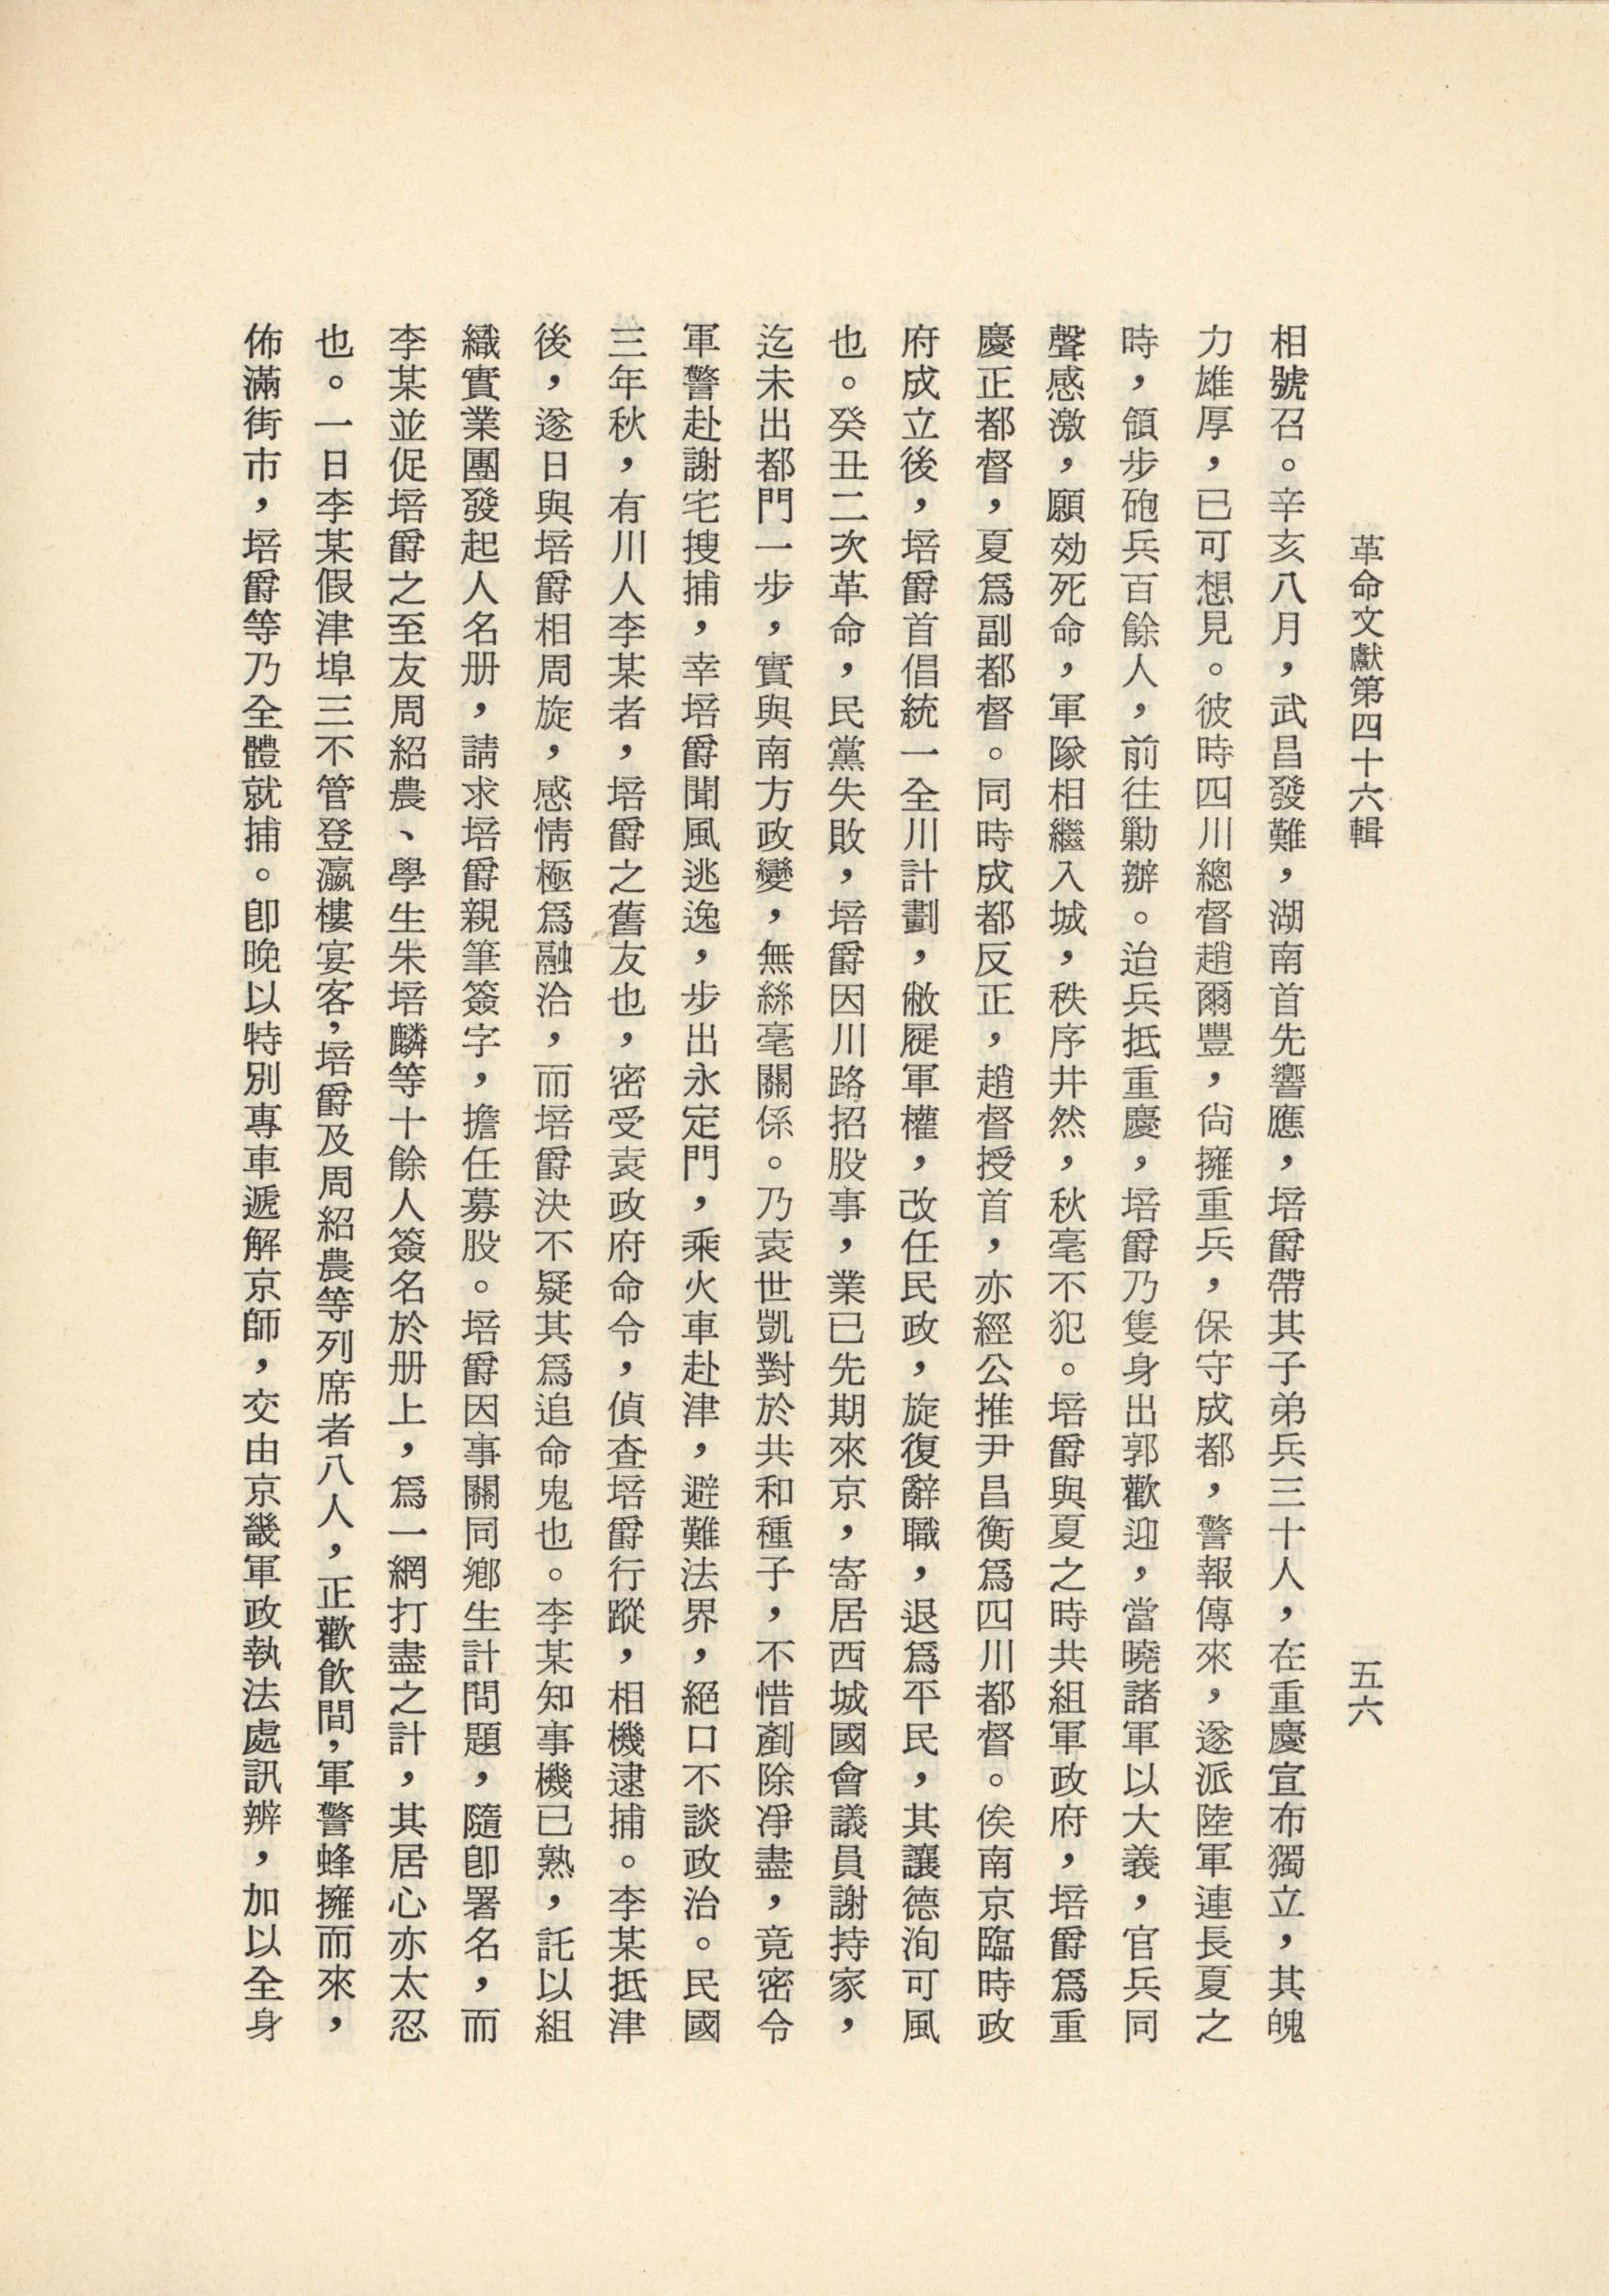 革命文獻第四十六輯
五六
相號召。辛亥八月，武昌發難，湖南首先響應，培爵帶其子弟兵三十人，在重慶宣布獨立，其魄
力雄厚，已可想見。彼時四川總督趙爾豐，尙擁重兵，保守成都，警報傳來，遂派陸軍連長夏之
時，領步砲兵百餘人，前往勦辦。迨兵抵重慶，培爵乃隻身出郭歡迎，當曉諸軍以大義，官兵同
聲感激，願効死命，軍隊相繼入城，秩序井然，秋毫不犯。培爵與夏之時共組軍政府，培爵爲重
慶正都督，夏爲副都督。同時成都反正，趙督授首，亦經公推尹昌衡爲四川都督。俟南京臨時政
府成立後，培爵首倡統一全川計劃，敝屣軍權，改任民政，旋復辭職，退爲平民，其讓德洵可風
也。癸丑二次革命，民黨失敗，培爵因川路招股事，業已先期來京，寄居西城國會議員謝持家，
迄未出都門一步，實與南方政變，無絲毫關係。乃袁世凱對於共和種子，不惜剷除淨盡，竟密令
軍警赴謝宅搜捕，幸培爵聞風逃逸，步出永定門，乘火車赴津，避難法界，絕口不談政治。民國
三年秋，有川人李某者，培爵之舊友也，密受袁政府命令，偵查培爵行蹤，相機逮捕。李某抵津
後，遂日與培爵相周旋，感情極爲融洽，而培爵決不疑其爲追命鬼也。李某知事機已熟，託以組
織實業團發起人名册，請求培爵親筆簽字，擔任募股。培爵因事關同鄉生計問題，隨卽署名，而
李某並促培爵之至友周紹農、學生朱培麟等十餘人簽名於册上，爲一網打盡之計，其居心亦太忍
也。一日李某假津埠三不管登瀛樓宴客，培爵及周紹農等列席者八人，正歡飲間，軍警蜂擁而來，
佈滿街市，培爵等乃全體就捕。卽晚以特別專車遞解京師，交由京畿軍政執法處訊辨，加以全身